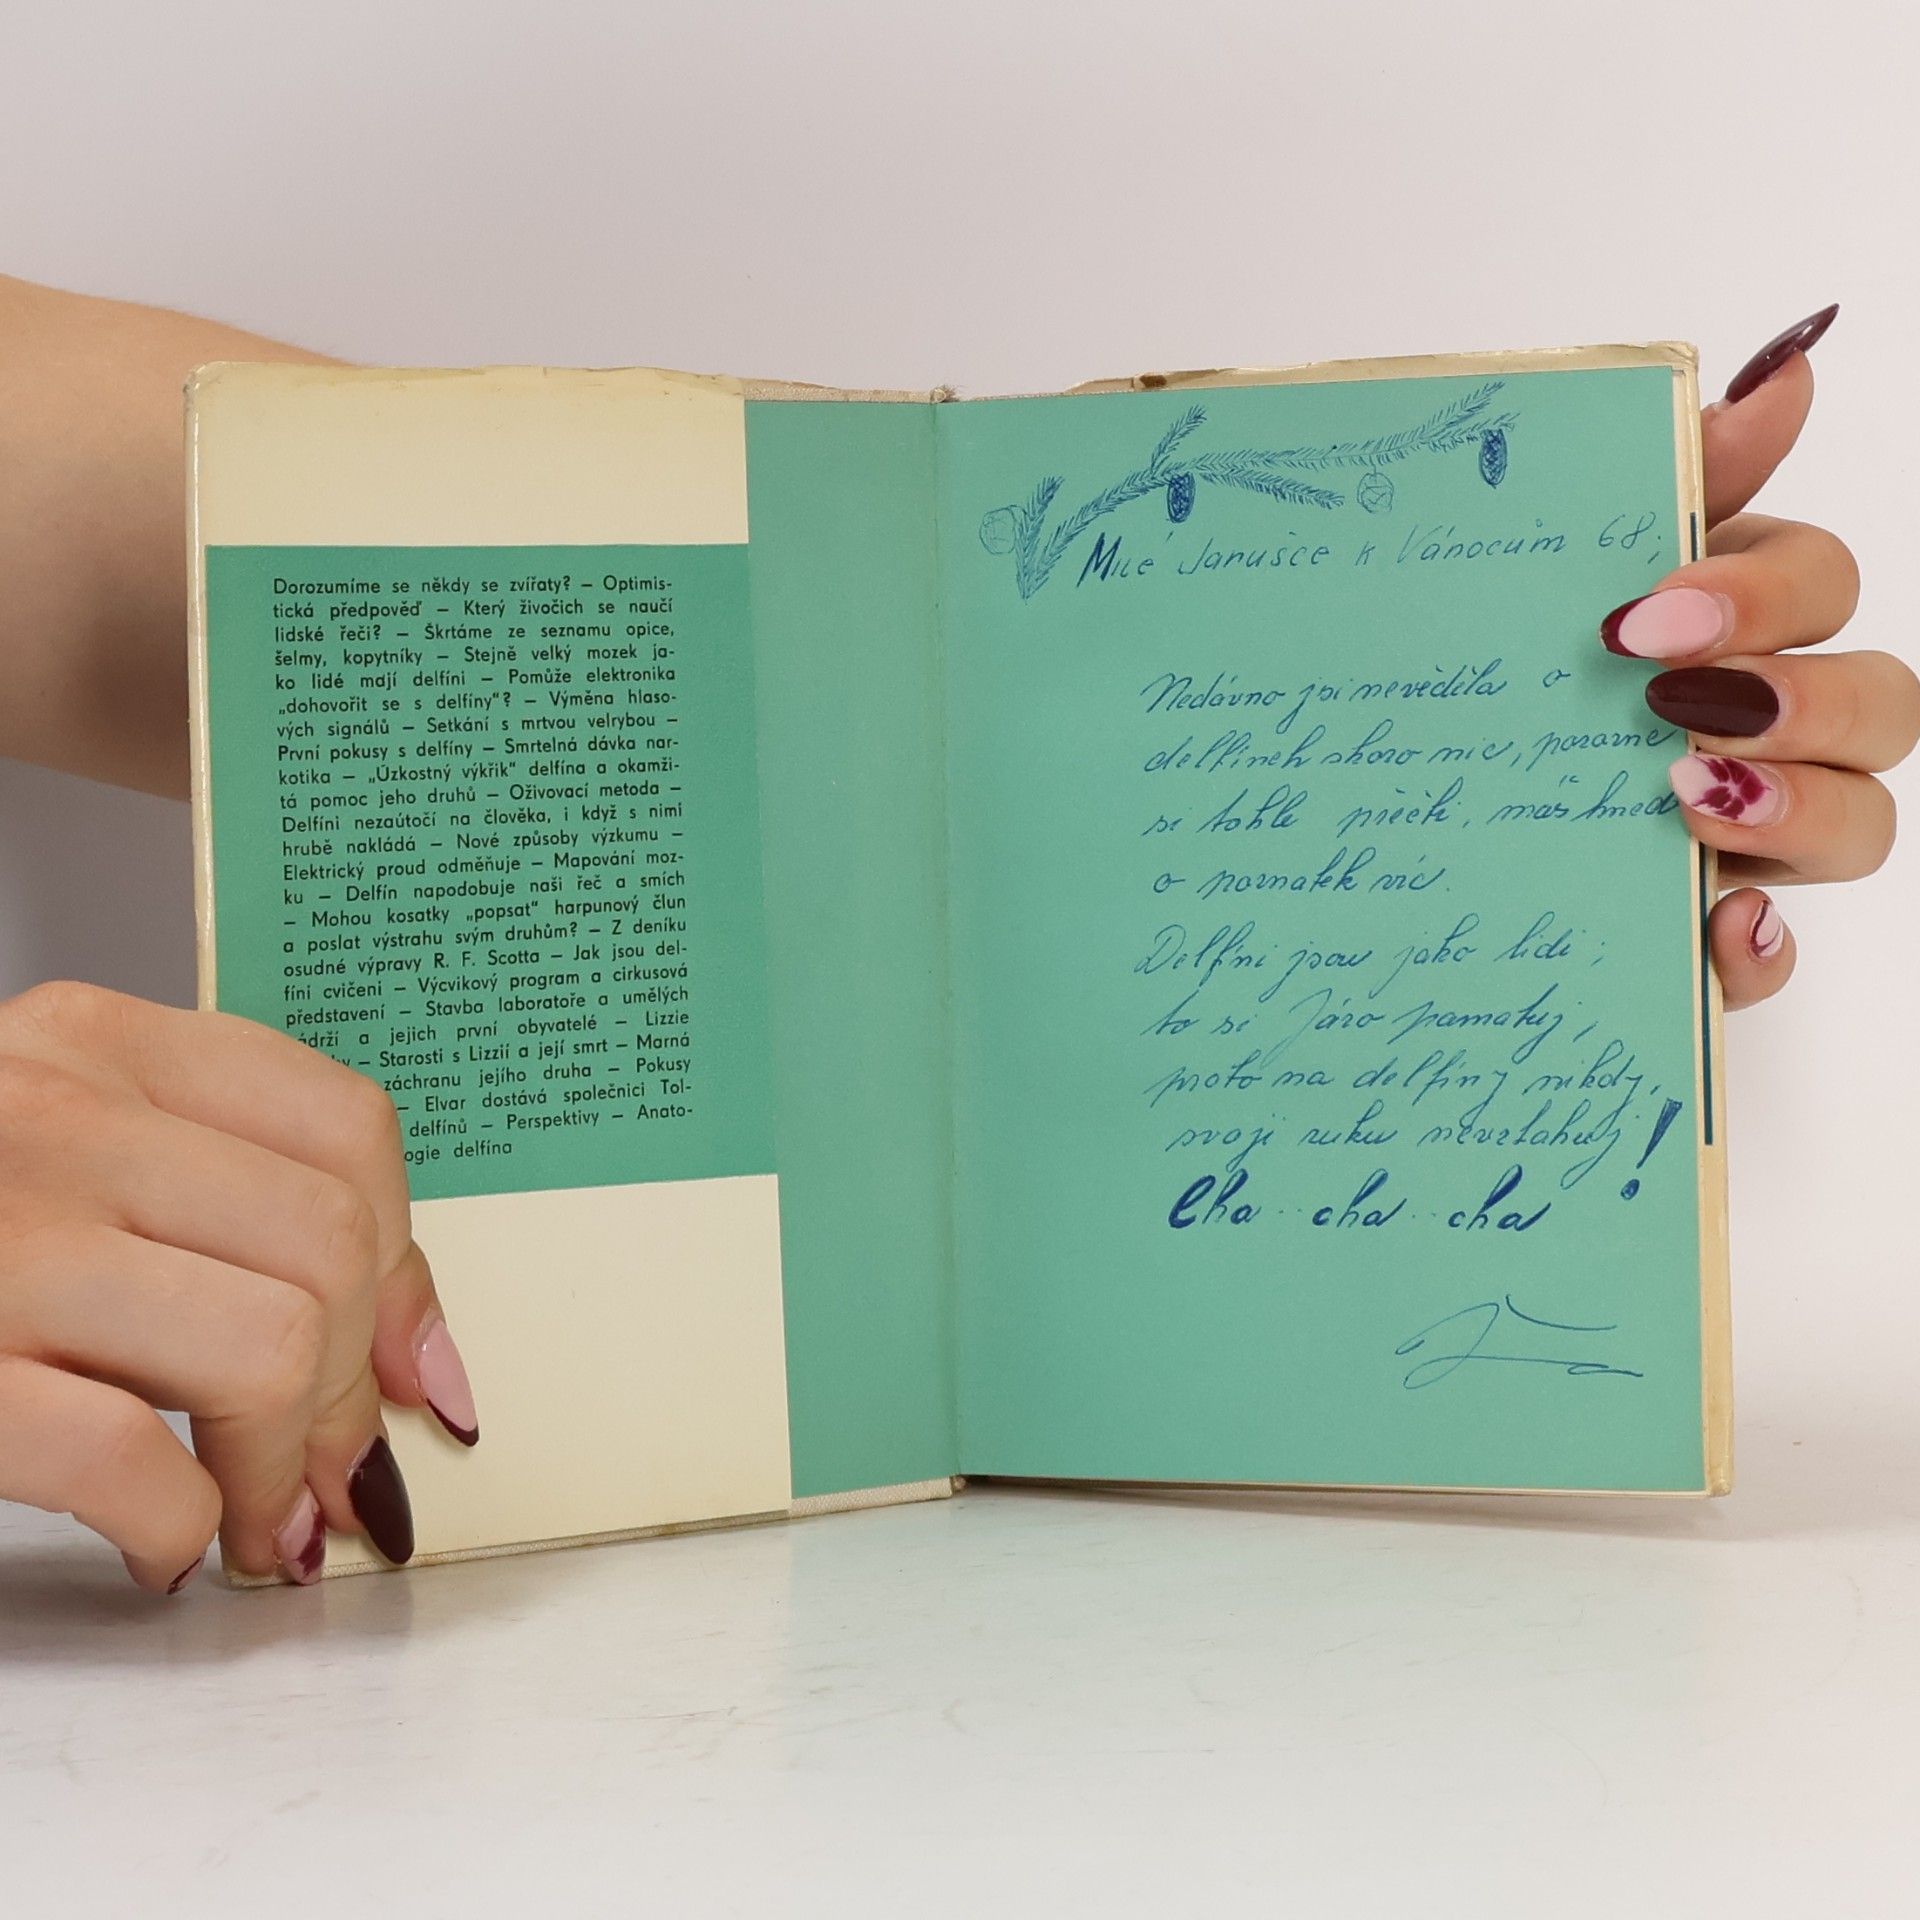 Dorozumíme se někdy se zvířaty? – Optimis-
tická předpověď – Který živočich se naučí
lidské řeči? – Škrtáme ze seznamu opice,
šelmy, kopytníky – Stejně velký mozek ja-
ko lidé mají delfíni – Pomůže elektronika
„dohovořit se s delfíny“? – Výměna hlaso-
vých signálů – Setkání s mrtvou velrybou –
První pokusy s delfíny – Smrtelná dávka nar-
kotika – „Úzkostný výkřik“ delfína a okamži-
tá pomoc jeho druhů – Oživovací metoda –
Delfíni nezaútočí na člověka, i když s nimi
hrubě nakládá – Nové způsoby výzkumu –
Elektrický proud odměňuje – Mapování moz-
ku – Delfín napodobuje naši řeč a smích
– Mohou kosatky „popsat“ harpunový člun
a poslat výstrahu svým druhům? – Z deníku
osudné výpravy R. F. Scotta – Jak jsou del-
fíni cvičeni – Výcvikový program a cirkusová
představení – Stavba laboratoře a umělých
ádrží a jejich první obyvatelé – Lizzie
– Starosti s Lizzií a její smrt – Marná
záchranu jejího druha – Pokusy
– Elvar dostává společnici Tol-
delfínů – Perspektivy – Anato-
ogie delfína
Milé Janušce k Vánocům 68;
Nedávno jsi nevěděla o
delfíneh skoro nic, pozorně
si tohle přečti, máš hned
o poznatek víc.
Delfíni jsou jako lidi;
to si Járo pamatuj,
proto na delfíny nikdy,
svoji ruku nevztahuj!
Cha .. cha .. cha